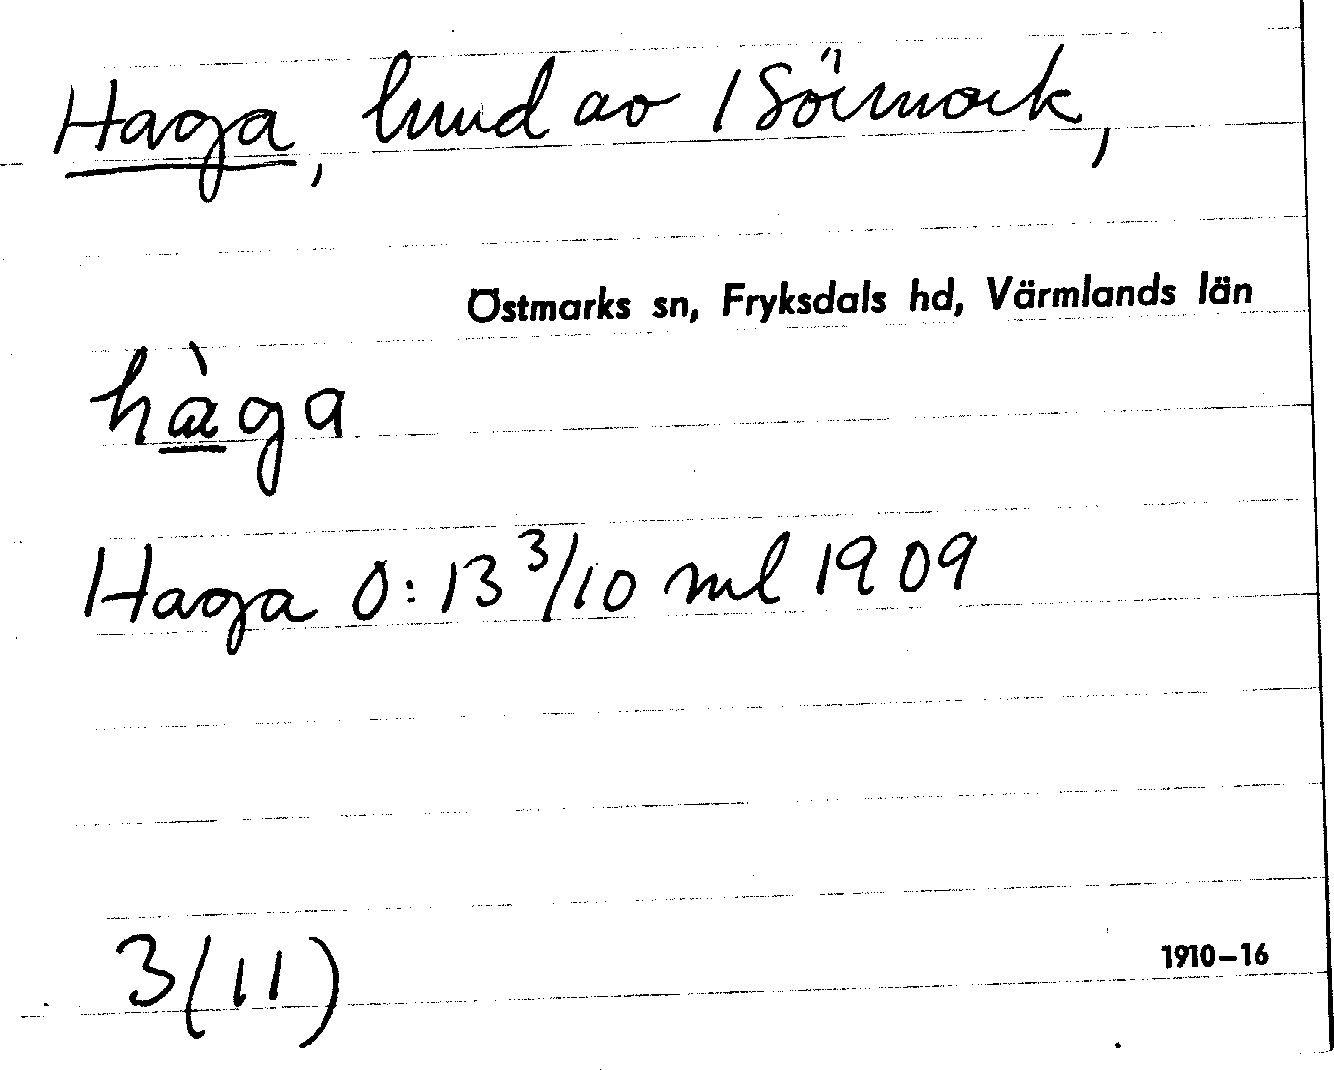 Haga, lund av 1 Sörmark,
Östmarks sn, Fryksdals hd, Värmlands län
hàga
Haga 0:13 3/10 ml 1909
3(11)
1910-16